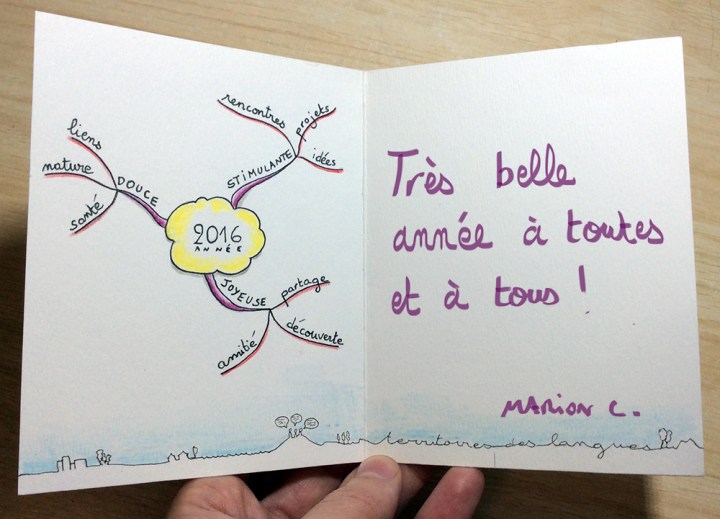 2016
ANNÉE
DOUCE
liens
nature
santé
STIMULANTE
rencontres
projets
idées
JOYEUSE
partage
découverte
amitié
Très belle
année à toutes
et à tous !
MARION C.
territoires des langues